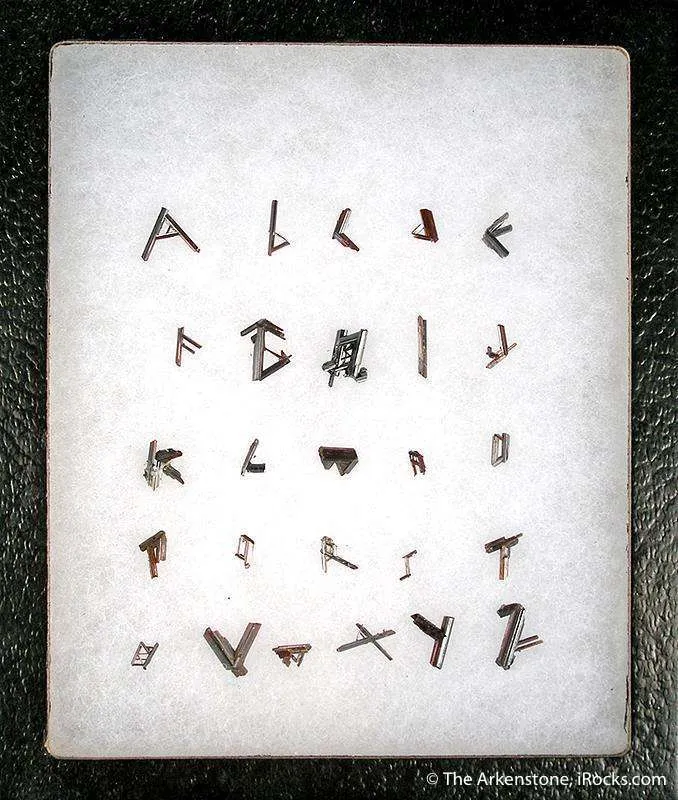 A b C d E
F G H I J
K L M N O
P Q R S T
U V W X Y Z
© The Arkenstone, iRocks.com